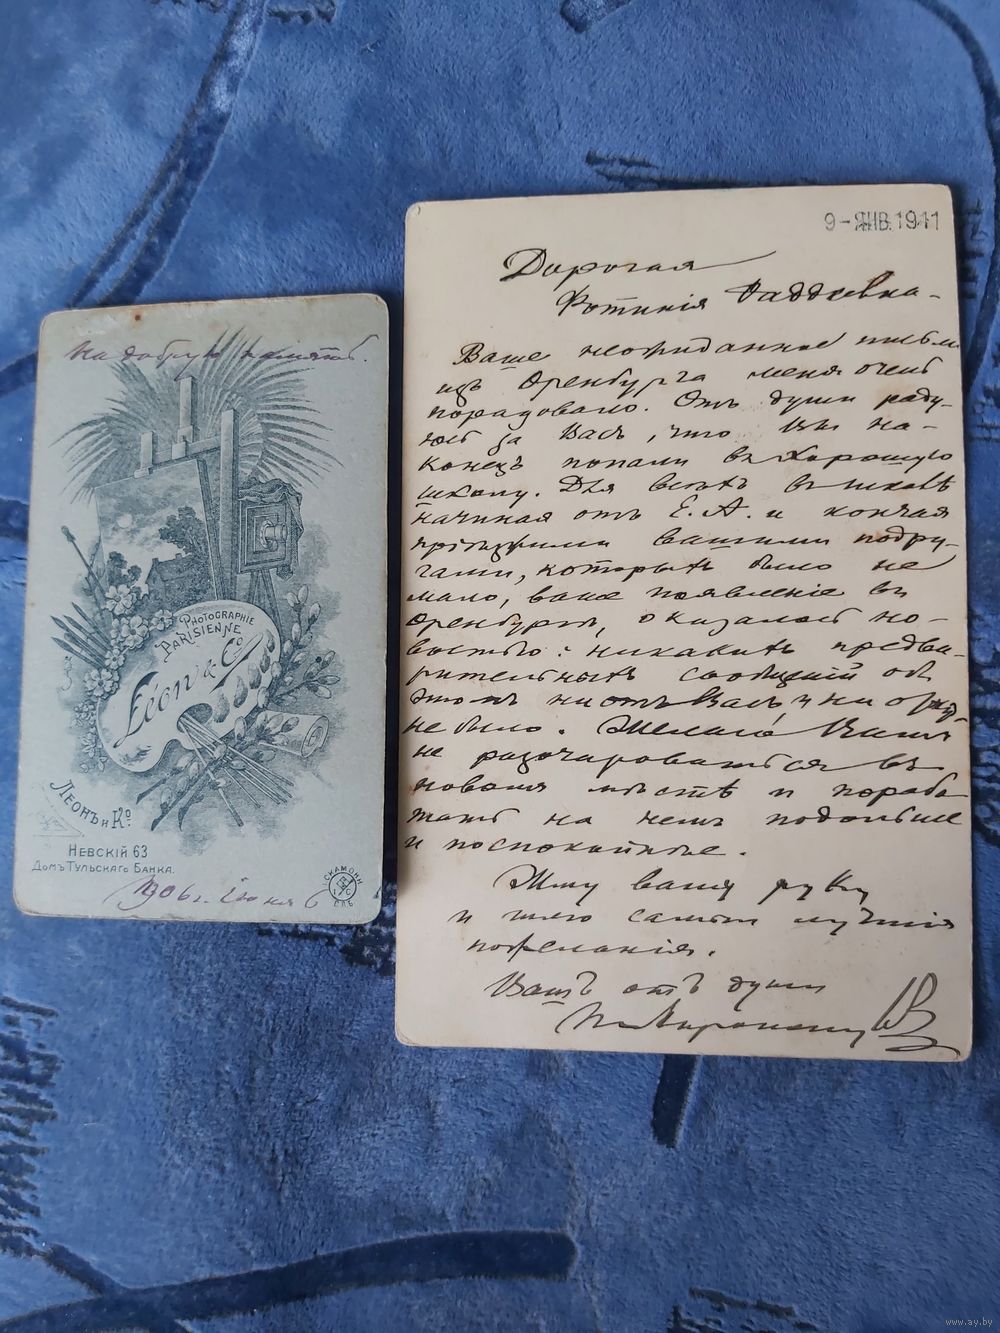 На добрую память.
PHOTOGRAPHIE
PARISIENNE
Léon & Co.
Леонъ и Ко.
Невскій 63
Домъ Тульскаго Банка.
СКАМОНИ
СПБ
1906 г. іюня 6
9-ЯНВ.1911
Дорогая
Фотинія Фаддѣевна-
Ваше неожиданное письмо
изъ Оренбурга меня очень
порадовало. Отъ души раду-
юсь за Васъ, что Вы на-
конецъ попали въ хорошую
школу. Для всѣхъ въ школѣ
начиная отъ Е. А. и кончая
прежними вашими подру-
гами, которыхъ было не
мало, ваше появленіе въ
Оренбургѣ, оказалось но-
востью: никакихъ предва-
рительныхъ сообщеній объ
этомъ ни отъ Васъ, ни
не было. Желаю Вамъ
не разочароваться въ
новомъ мѣстѣ и порабо
тать на немъ подольше
и поспокойнѣе.
Жму вашу руку
и шлю самыя лучшія
пожеланія.
Вашъ отъ души
www.ay.by